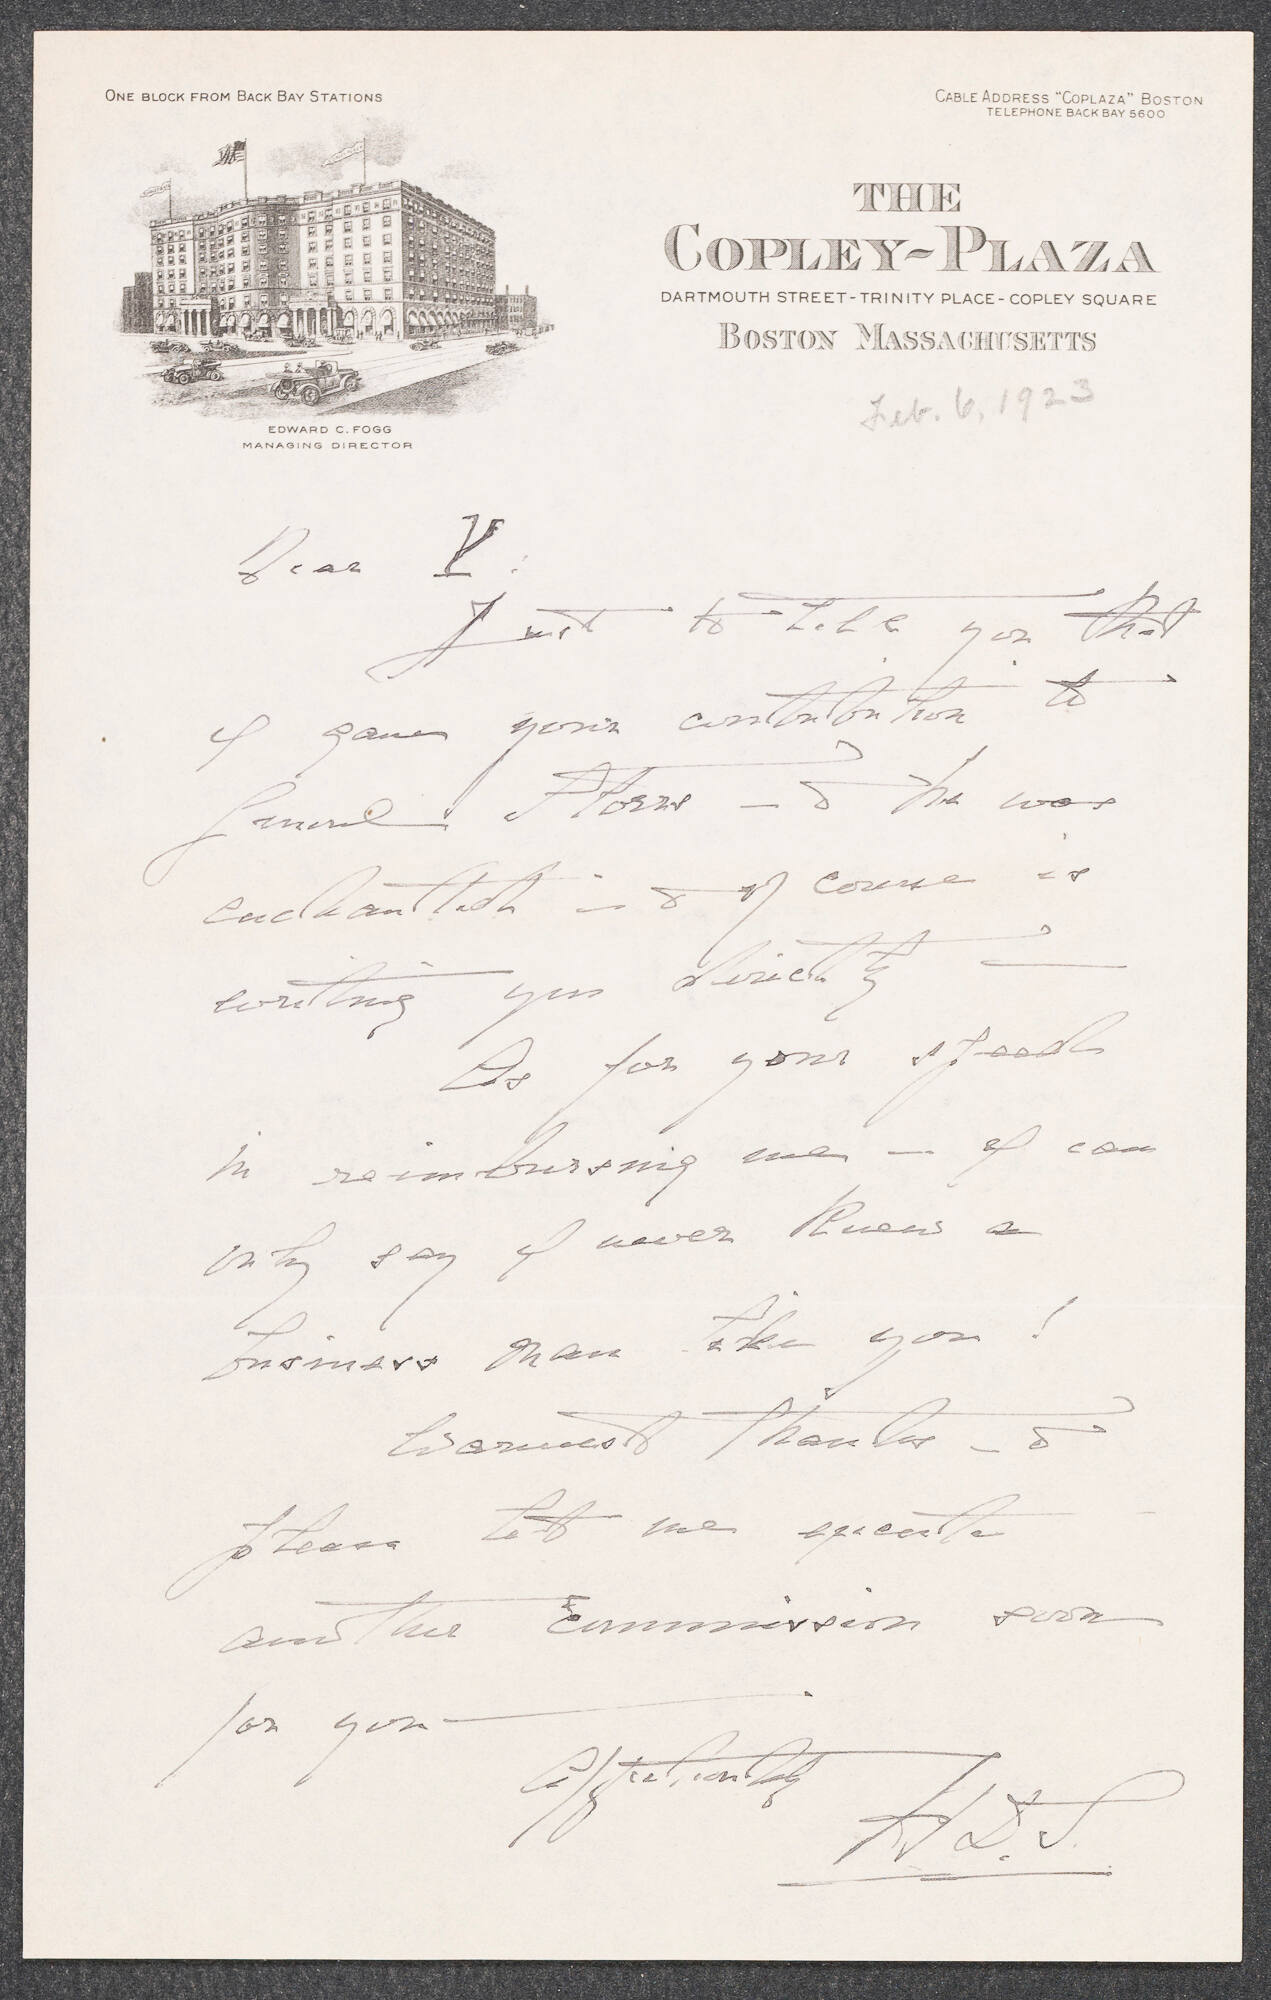 ONE BLOCK FROM BACK BAY STATIONS
CABLE ADDRESS "COPLAZA" BOSTON
TELEPHONE BACK BAY 5600
THE
COPLEY-PLAZA
DARTMOUTH STREET - TRINITY PLACE - COPLEY SQUARE
BOSTON MASSACHUSETTS
EDWARD C. FOGG
MANAGING DIRECTOR
Feb. 6, 1923
Dear V:
Just to tell you that
I gave your contribution to
General — & he was
enchanted — & of course is
writing you directly —
As for your speed
in reimbursing me — I can
only say I never knew a
business man like you!
Warmest thanks — &
please let me execute
another commission soon
for you —
Affectionately
H.D.S.